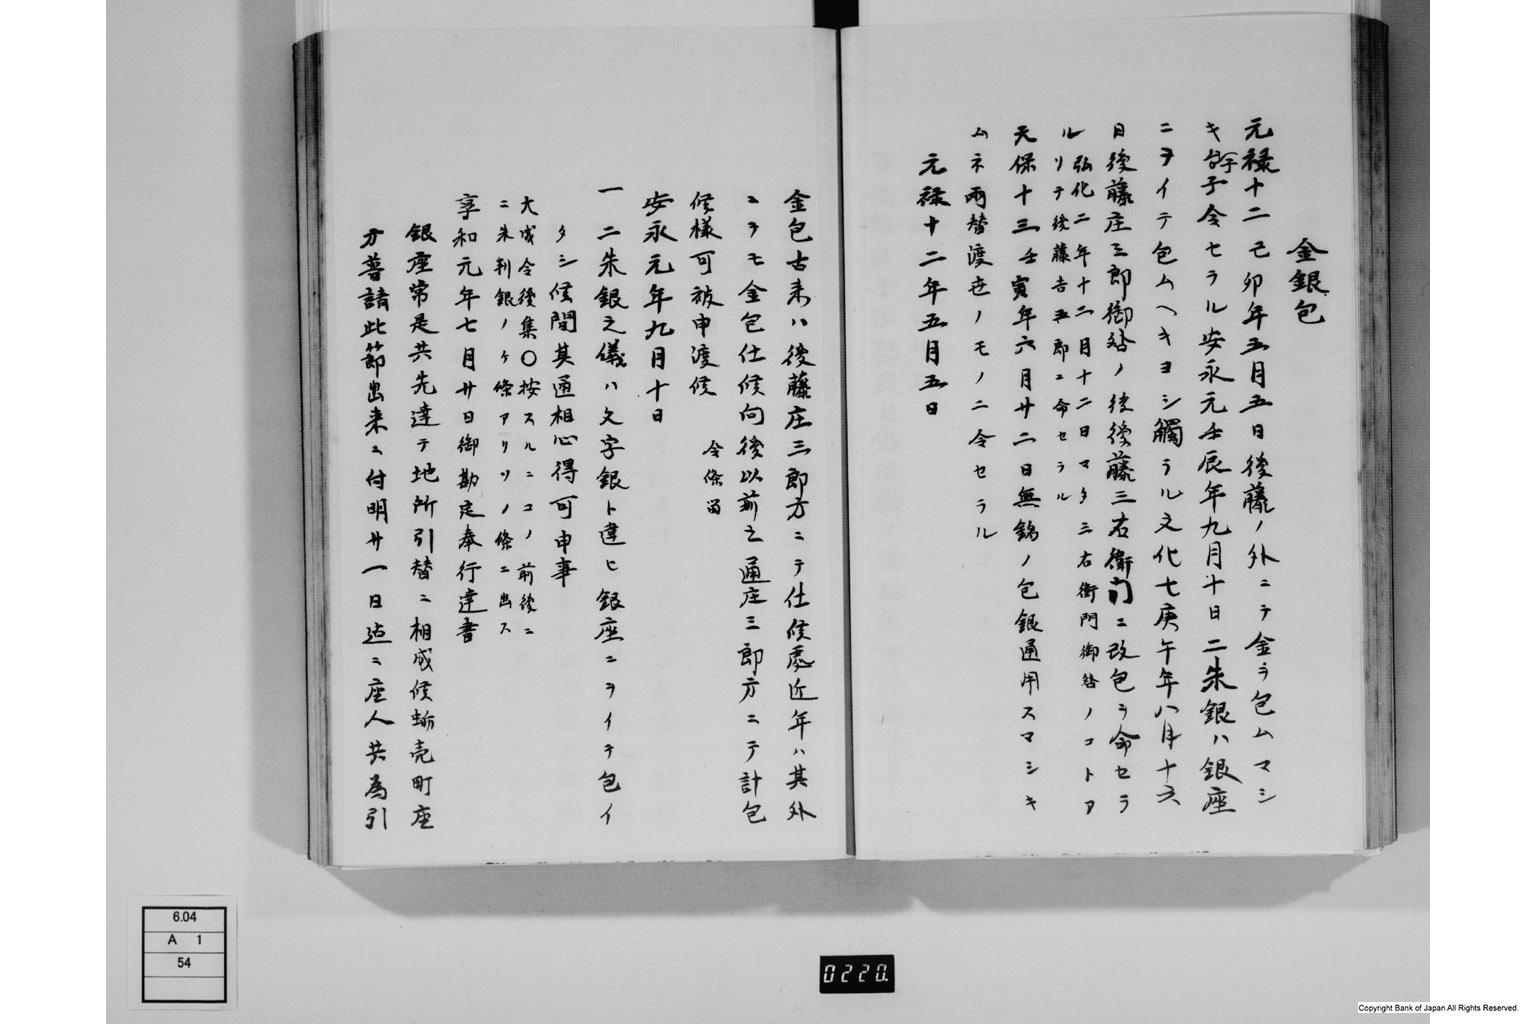 金銀包
元禄十二己卯年五月五日後藤ノ外ニテ金ヲ包ムマシ
キ旨令セラル安永元壬辰年九月十日二朱銀ハ銀座
ニヲイテ包ムヘキヨシ觸ラル文化七庚午年八月十六
日後藤庄三郎御咎ノ後後藤三右衛門ニ改包ヲ命セラ
ル弘化二年十二月十二日マタ三右衛門御咎ノコトア
リテ後藤吉五郎ニ命セラル
天保十三壬寅年六月廿二日無銘ノ包銀通用スマシキ
ムネ両替渡世ノモノニ令セラル
元禄十二年五月五日
金包古来ハ後藤庄三郎方ニテ仕候處近年ハ其外
ニヲモ金包仕候向後以前之通庄三郎方ニテ計包
候様可被申渡候 令條留
安永元年九月十日
一 二朱銀之儀ハ文字銀ト違ヒ銀座ニヲイテ包イ
タシ候間其通相心得可申事
大成令後集〇按スルニコノ前後ニ
二朱判銀ノケ條アリソノ條ニ出ス
享和元年七月廿日御勘定奉行達書
銀座常是共先達テ地所引替ニ相成候蛎売町座
方普請此節出来ニ付明廿一日迠ニ座人共為引
6.04
A 1
54
0220.
Copyright Bank of Japan All Rights Reserved.